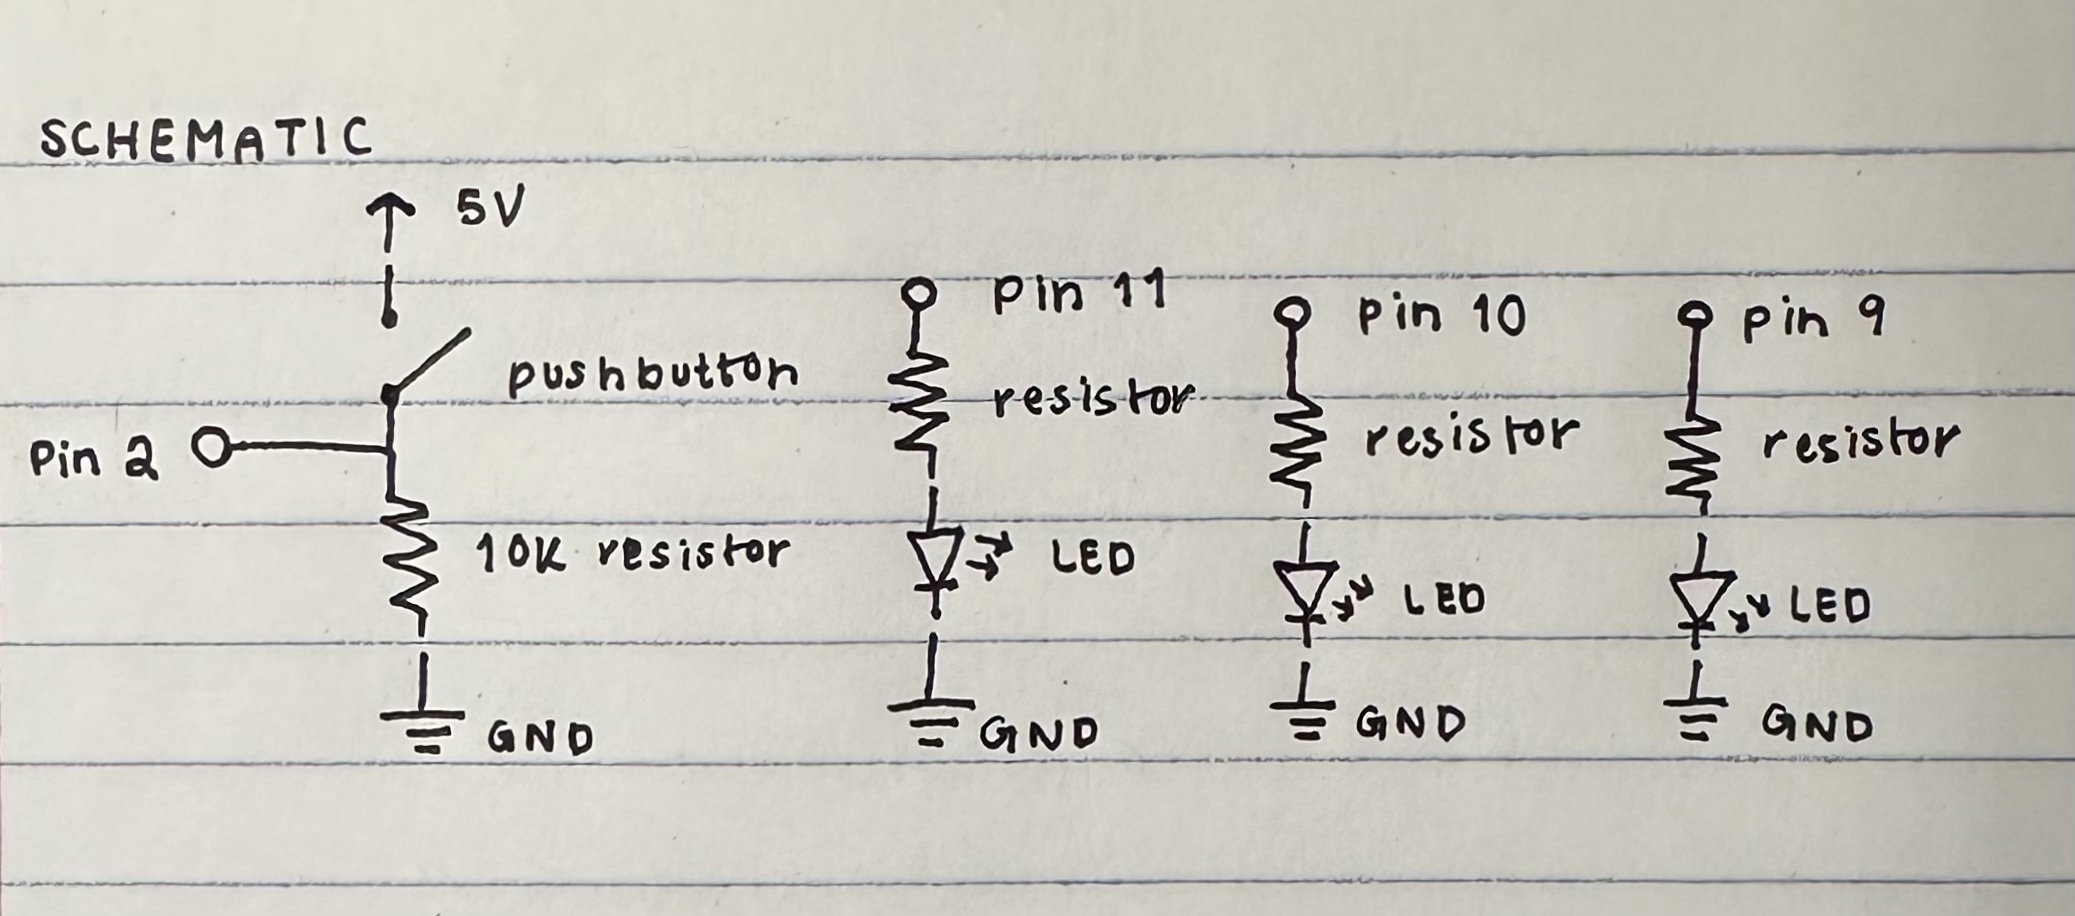 SCHEMATIC
5V
pushbutton
Pin 2
10K resistor
GND
pin 11
resistor
LED
GND
pin 10
resistor
LED
GND
pin 9
resistor
LED
GND